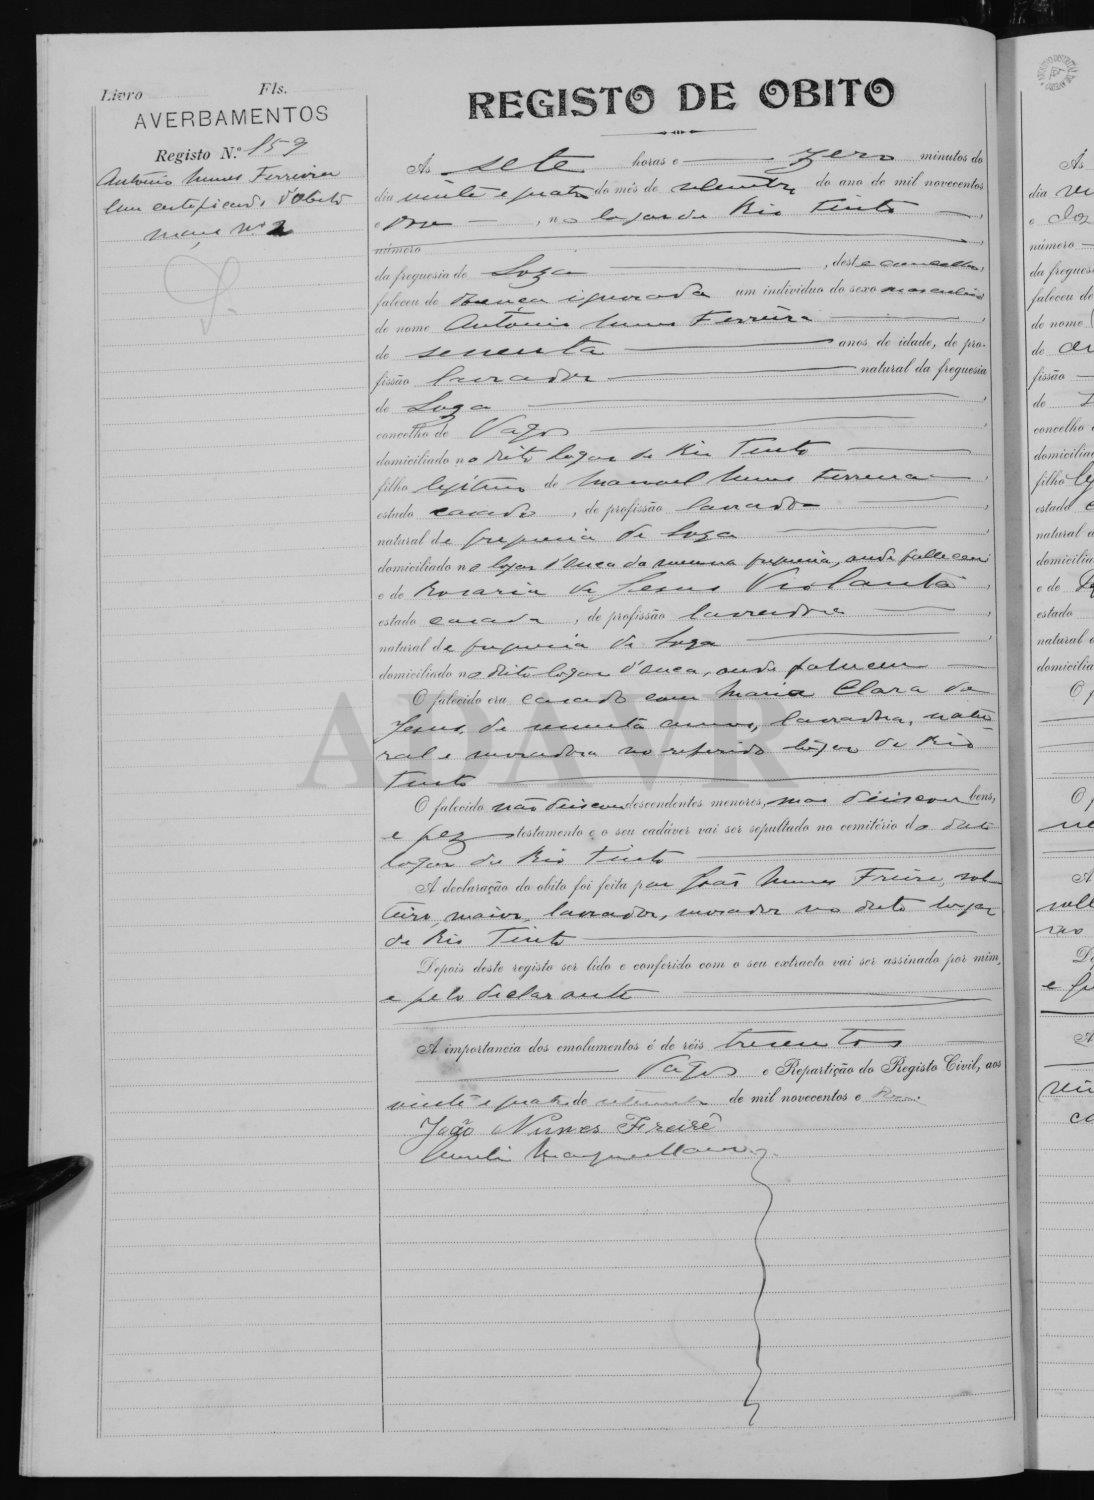 Livro Fls.
AVERBAMENTOS
Registo N.º 159
António Nunes Ferreira
maço nº 2
REGISTO DE OBITO
Ás sete horas e — zero minutos do
dia vinte e quatro do mês de setembro do ano de mil novecentos
e onze —, no logar de Rio Tinto —,
número
da freguesia de Soza —, deste concelho,
faleceu de doença ignorada um individuo do sexo masculino
de nome António Nunes Ferreira —,
de — anos de idade, de pro-
fissão lavrador — natural da freguesia
de Soza —,
concelho de Vagos —,
domiciliado no dito logar de Rio Tinto —
filho legitimo de Manoel Nunes Ferreira —,
estado casado, de profissão lavrador
natural de freguesia de Soza —,
domiciliado no logar d'Ouca da mesma freguesia, onde falleceu
e de Rosaria de Jesus Violanta,
estado casada, de profissão lavradora —,
natural de freguesia de Soza —,
domiciliado no dito logar d'Ouca, onde faleceu —
O falecido era casado com Maria Clara de
Jesus, de annos, lavradora, natu-
ral e moradora no referido lugar de Rio
Tinto —
O falecido não deixou descendentes menores, mas deixou bens,
e fez testamento e o seu cadáver vai ser sepultado no cemitério do dito
logar de Rio Tinto —
A declaração do obito foi feita por João Nunes Freire, sol-
teiro, maior, lavrador, morador no dito logar
de Rio Tinto —
Depois deste registo ser lido e conferido com o seu extracto vai ser assinado por mim,
e pelo declarante —
A importancia dos emolumentos é de réis trezentos
— Vagos e Repartição do Registo Civil, aos
vinte e quatro de setembro de mil novecentos e onze.
João Nunes Freire
ADAVR